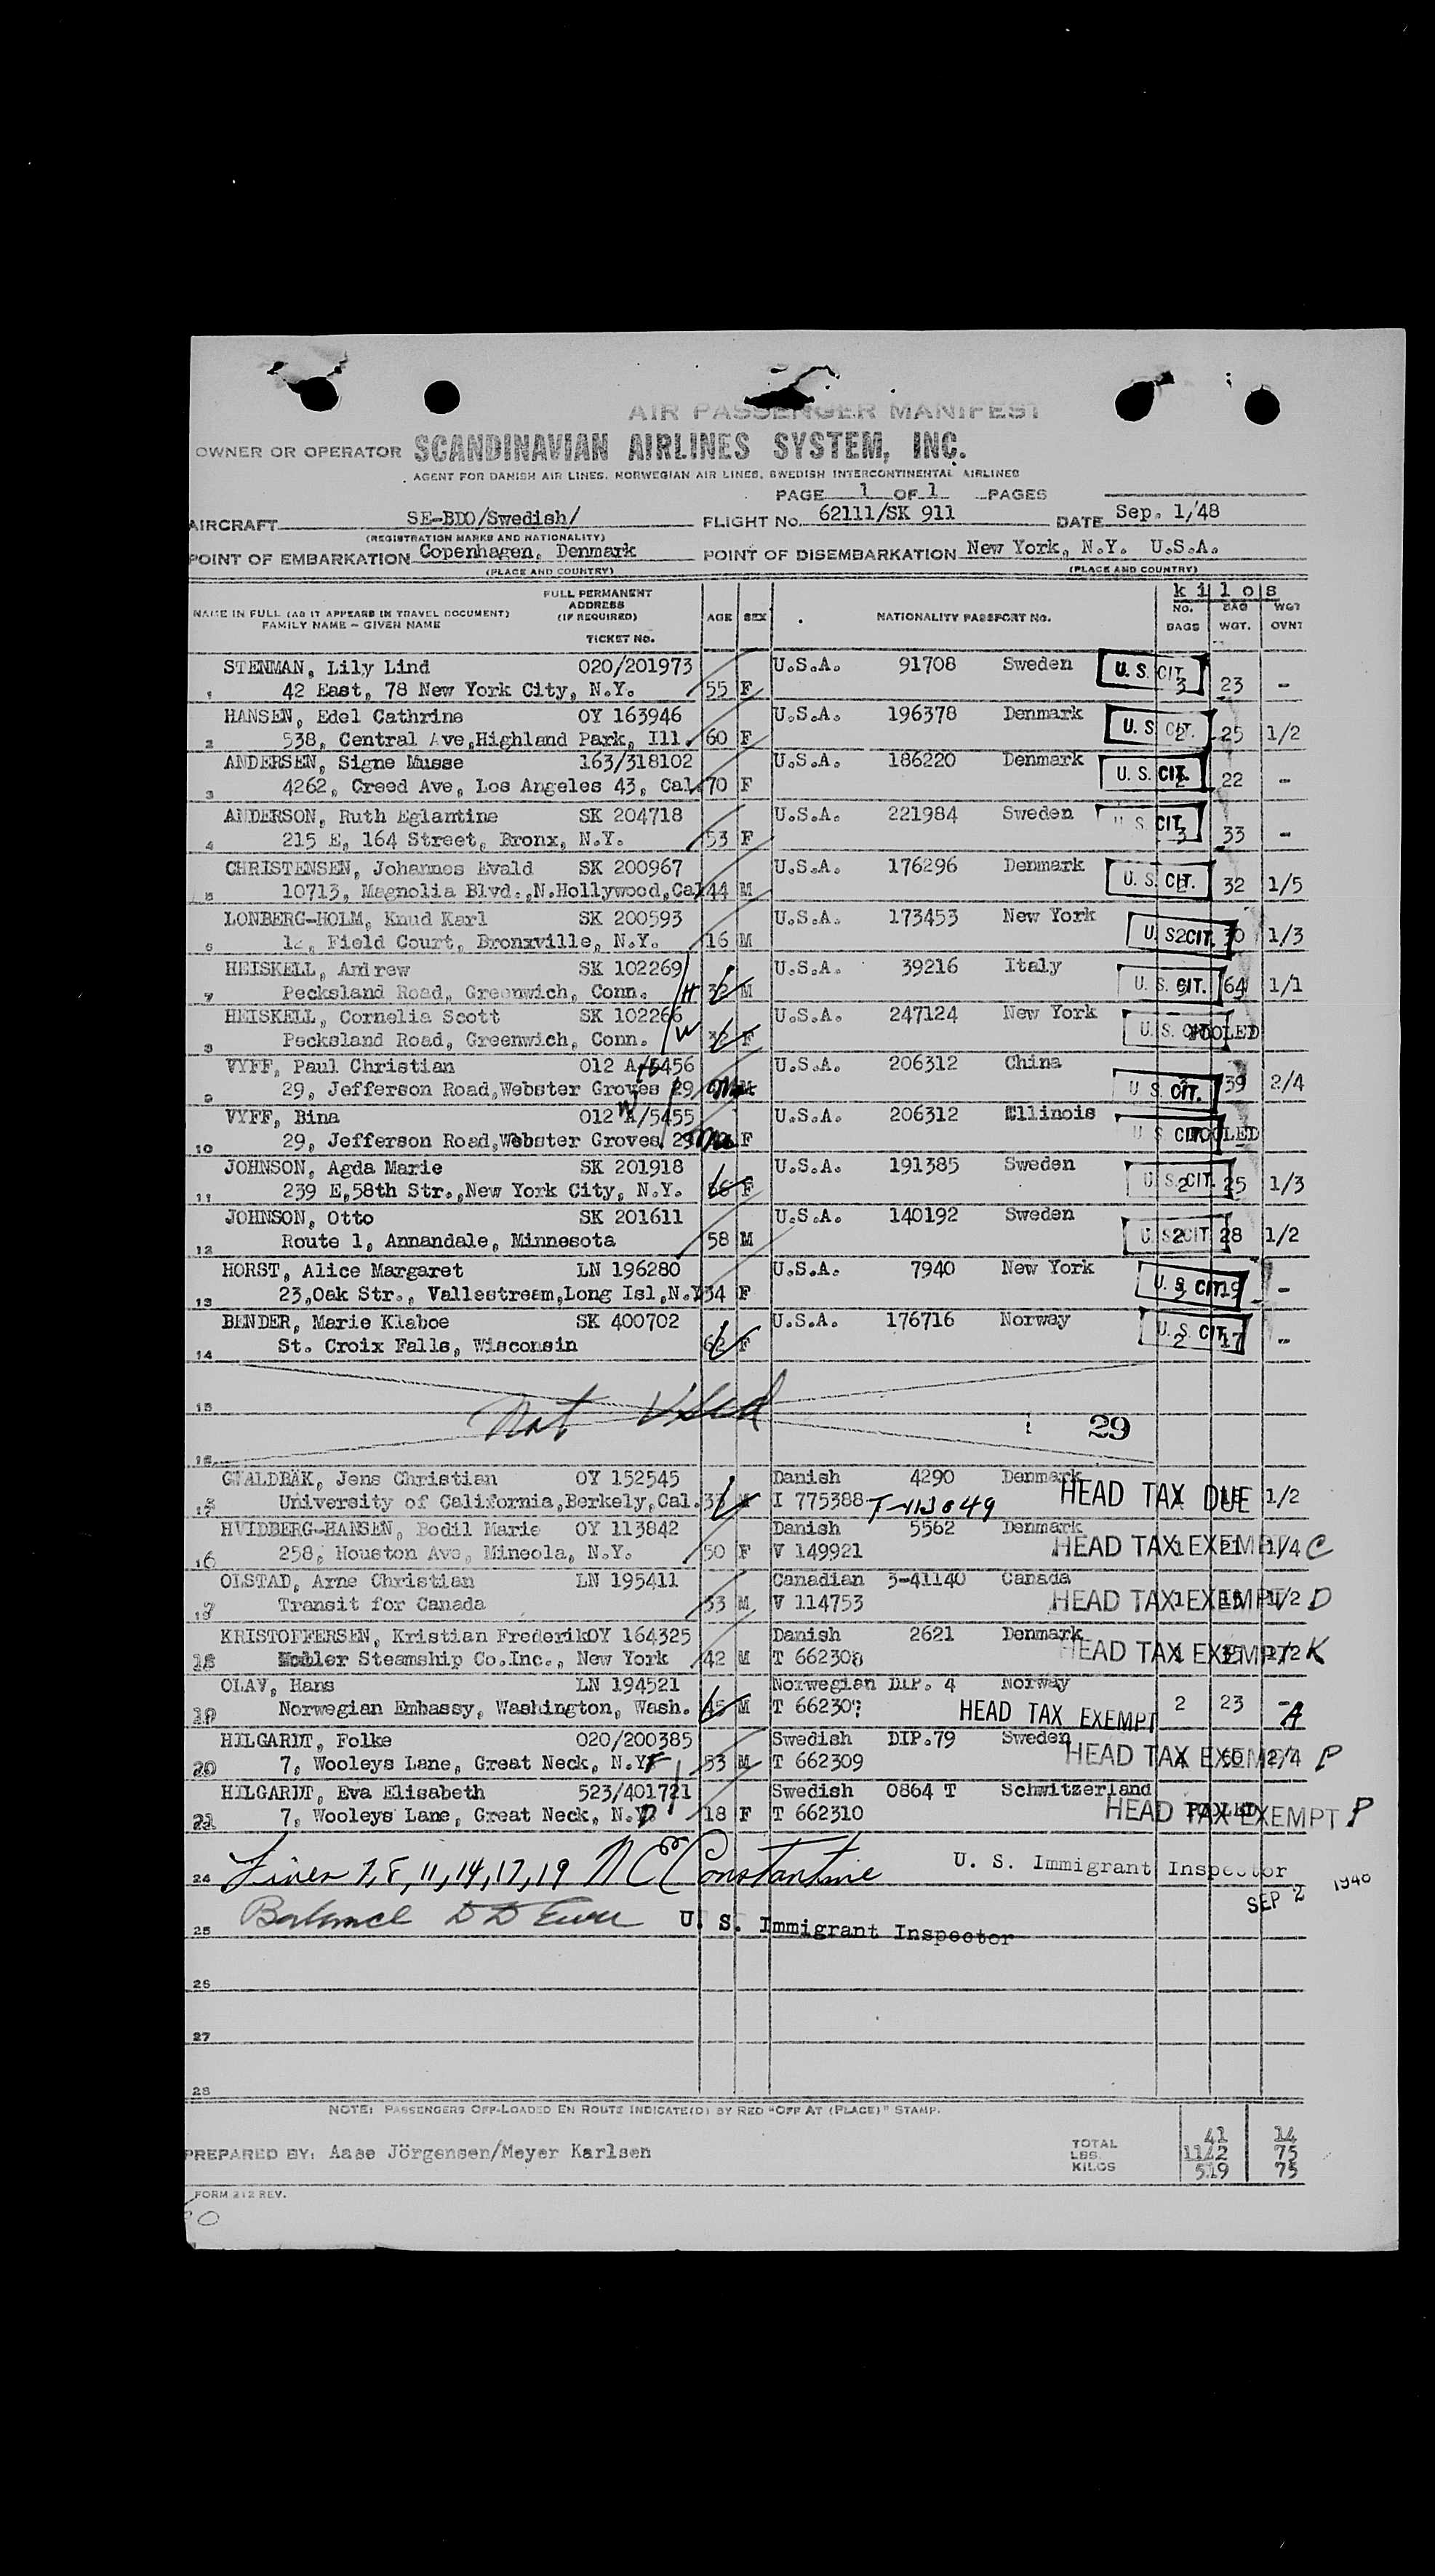 AIR PASSENGER MANIFEST
OWNER OR OPERATOR SCANDINAVIAN AIRLINES SYSTEM, INC.
AGENT FOR DANISH AIR LINES, NORWEGIAN AIR LINES, SWEDISH INTERCONTINENTAL AIRLINES
PAGE 1 OF 1 PAGES
AIRCRAFT SE-BDO/Swedish/ FLIGHT No. 62111/SK 911 DATE Sep. 1/48
(REGISTRATION MARKS AND NATIONALITY)
POINT OF EMBARKATION Copenhagen, Denmark POINT OF DISEMBARKATION New York, N.Y. U.S.A.
(PLACE AND COUNTRY) (PLACE AND COUNTRY)
NAME IN FULL (AS IT APPEARS IN TRAVEL DOCUMENT) FAMILY NAME - GIVEN NAME FULL PERMANENT ADDRESS (IF REQUIRED) TICKET NO. AGE SEX NATIONALITY PASSPORT NO. kilos NO. BAGS BAG WGT. WGT OVNT
STENMAN, Lily Lind 020/201973 U.S.A. 91708 Sweden U. S. CIT.
1 42 East, 78 New York City, N.Y. 55 F 3 23 -
HANSEN, Edel Cathrine OY 163946 U.S.A. 196378 Denmark U. S. CIT.
2 538, Central Ave,Highland Park, Ill. 60 F 2 25 1/2
ANDERSEN, Signe Musse 163/318102 U.S.A. 186220 Denmark U. S. CIT.
3 4262, Creed Ave, Los Angeles 43, Cal. 70 F 2 22 -
ANDERSON, Ruth Eglantine SK 204718 U.S.A. 221984 Sweden U. S. CIT.
4 215 E, 164 Street, Bronx, N.Y. 53 F 3 33 -
CHRISTENSEN, Johannes Evald SK 200967 U.S.A. 176296 Denmark U. S. CIT.
5 10713, Magnolia Blvd.,N.Hollywood,Cal 44 M 32 1/5
LONBERG-HOLM, Knud Karl SK 200593 U.S.A. 173453 New York U. S. CIT.
6 12, Field Court, Bronxville, N.Y. 16 M 2 1/3
HEISKELL, Andrew SK 102269 U.S.A. 39216 Italy U. S. CIT.
7 Pecksland Road, Greenwich, Conn. H 32 M 64 1/1
HEISKELL, Cornelia Scott SK 102266 U.S.A. 247124 New York U. S. CIT. POOLED
8 Pecksland Road, Greenwich, Conn. W 32 F
VYFF, Paul Christian 012 A/5456 U.S.A. 206312 China U. S. CIT.
9 29, Jefferson Road,Webster Groves 29 39 2/4
VYFF, Bina 012 A/5455 U.S.A. 206312 Illinois U. S. CIT. POOLED
10 29, Jefferson Road,Webster Groves F
JOHNSON, Agda Marie SK 201918 U.S.A. 191385 Sweden U. S. CIT.
11 239 E,58th Str.,New York City, N.Y. F 2 25 1/3
JOHNSON, Otto SK 201611 U.S.A. 140192 Sweden U. S. CIT.
12 Route 1, Annandale, Minnesota 58 M 2 28 1/2
HORST, Alice Margaret LN 196280 U.S.A. 7940 New York U. S. CIT.
13 23,Oak Str., Vallestream,Long Isl,N.Y 34 F 19 -
BENDER, Marie Klaboe SK 400702 U.S.A. 176716 Norway U. S. CIT.
14 St. Croix Falls, Wisconsin 62 F 2 17 -
15 Not Used 29
16
GVALDBÄK, Jens Christian OY 152545 Danish 4290 Denmark HEAD TAX DUE
University of California,Berkely,Cal. 33 M I 775388 T-113049 1/2
HVIDBERG-HANSEN, Bodil Marie OY 113842 Danish 5562 Denmark HEAD TAX EXEMPT C
16 258, Houston Ave, Mineola, N.Y. 50 F V 149921 1 21 1/4
OLSTAD, Arne Christian LN 195411 Canadian 3-41140 Canada HEAD TAX EXEMPT D
Transit for Canada 33 M V 114753 1 15 1/2
KRISTOFFERSEN, Kristian Frederik OY 164325 Danish 2621 Denmark HEAD TAX EXEMPT K
18 Steamship Co.Inc., New York 42 M T 662308
OLAV, Hans LN 194521 Norwegian DIP. 4 Norway HEAD TAX EXEMPT A
19 Norwegian Embassy, Washington, Wash. 45 M T 66230 2 23 -
HILGARDT, Folke 020/200385 Swedish DIP.79 Sweden HEAD TAX EXEMPT P
20 7, Wooleys Lane, Great Neck, N.Y. F 53 M T 662309 2/4
HILGARDT, Eva Elisabeth 523/401721 Swedish 0864 T Schwitzerland HEAD TAX EXEMPT P
21 7, Wooleys Lane, Great Neck, N.Y. D 18 F T 662310 POOLED
24 Lines 7,8,11,14,17,19 N C Constantine U. S. Immigrant Inspector
SEP 2 1948
25 Balance D D U. S. Immigrant Inspector
26
27
28
NOTE: PASSENGERS OFF-LOADED EN ROUTE INDICATE(D) BY RED "OFF AT (PLACE)" STAMP.
TOTAL 41 14
PREPARED BY: Aase Jörgensen/Meyer Karlsen LBS. 1142 75
KILOS 519 75
FORM 212 REV.